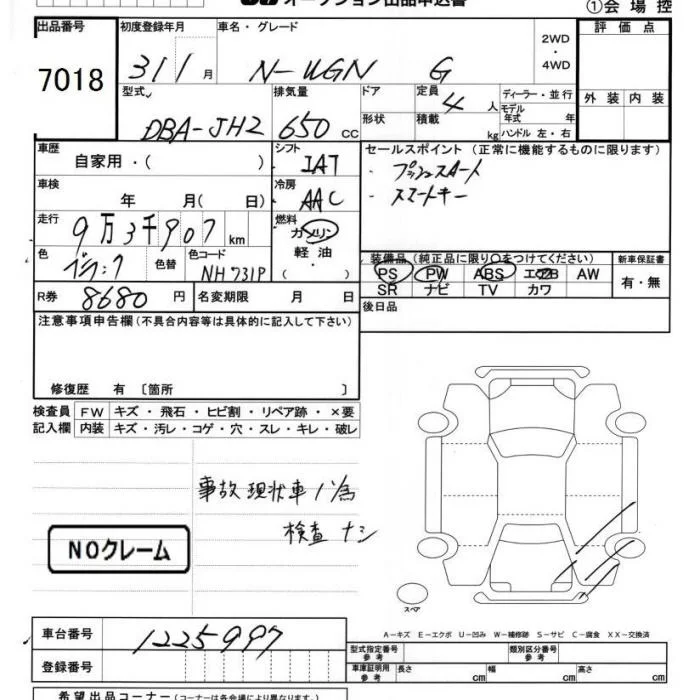 オークション出品申込書
①会 場 控
出品番号
7018
初度登録年月
311月
車名・グレード
N-WGN G
2WD
・
4WD
評 価 点
外 装 内 装
型式
DBA-JH2
排気量
650 cc
ドア
形状
定員
4 人
積載
kg
ディーラー・並行
モデル
年式 年
ハンドル 左・右
車歴
自家用・( )
シフト
IAT
セールスポイント (正常に機能するものに限ります)
・プッシュスタート
・スマートキー
車検
年 月( 日)
冷房
AAC
走行
9万3千907 km
燃料
ガソリン
軽 油
・( )
色
ブラック
色替
色コード
NH731P
装備品 (純正品に限り○をつけてください)
新車保証書
PS PW ABS エアB AW
SR ナビ TV カワ
有・無
R券
8680 円
名変期限 月 日
後日品
注意事項申告欄 (不具合内容等は具体的に記入して下さい)
修復歴 有 〔箇所 〕
検査員 FW キズ・飛石・ヒビ割・リペア跡・×要
記入欄 内装 キズ・汚レ・コゲ・穴・スレ・キレ・破レ
事故 現状車 の為
検査ナシ
NOクレーム
スペア
A-キズ E-エクボ U-凹み W-補修跡 S-サビ C-腐食 XX-交換済
車台番号
1225997
登録番号
型式指定番号
参考
類別区分番号
参考
車庫証明用
参考
長さ cm
幅 cm
高さ cm
希望出品コーナー (コーナーは各会場により異なります)